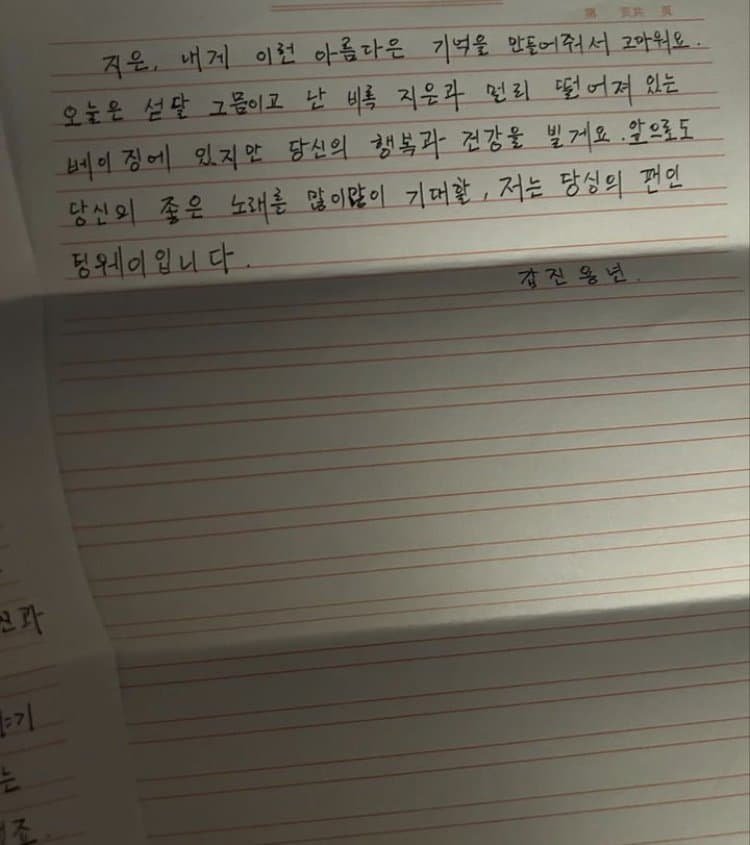 第 页共 页
지은, 내게 이런 아름다운 기억을 만들어줘서 고마워요.
오늘은 섣달 그믐이고 난 비록 지은과 멀리 떨어져 있는
베이징에 있지만 당신의 행복과 건강을 빌게요. 앞으로도
당신의 좋은 노래를 많이많이 기대할, 저는 당싱의 팬인
딩웨이입니다.
갑진용년.
는